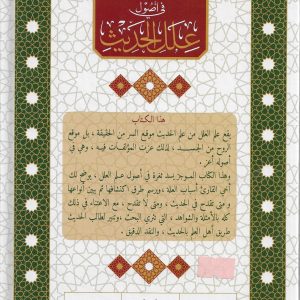 في أصول
علل الحديث
هذا الكتاب
يقع علم العلل من علم الحديث موقع السر من الحقيقة ، بل موقع
الروح من الجسد ، لذلك عزت المؤلفات فيه ، وهي في
أصوله أعز .
وهذا الكتاب الموجز يسد ثغرة في أصول علم العلل ، يوضح لك
أخي القارئ أسباب العلة ، ويرسم طرق اكتشافها ثم يبين أنواعها
ومتى تقدح في الحديث ، ومتى لا تقدح ، مع الاعتناء في ذلك
كله بالأمثلة والشواهد ، التي تثري البحث ، وتنير لطالب الحديث
طريق أهل العلم بالحديث ، والنقد الدقيق .